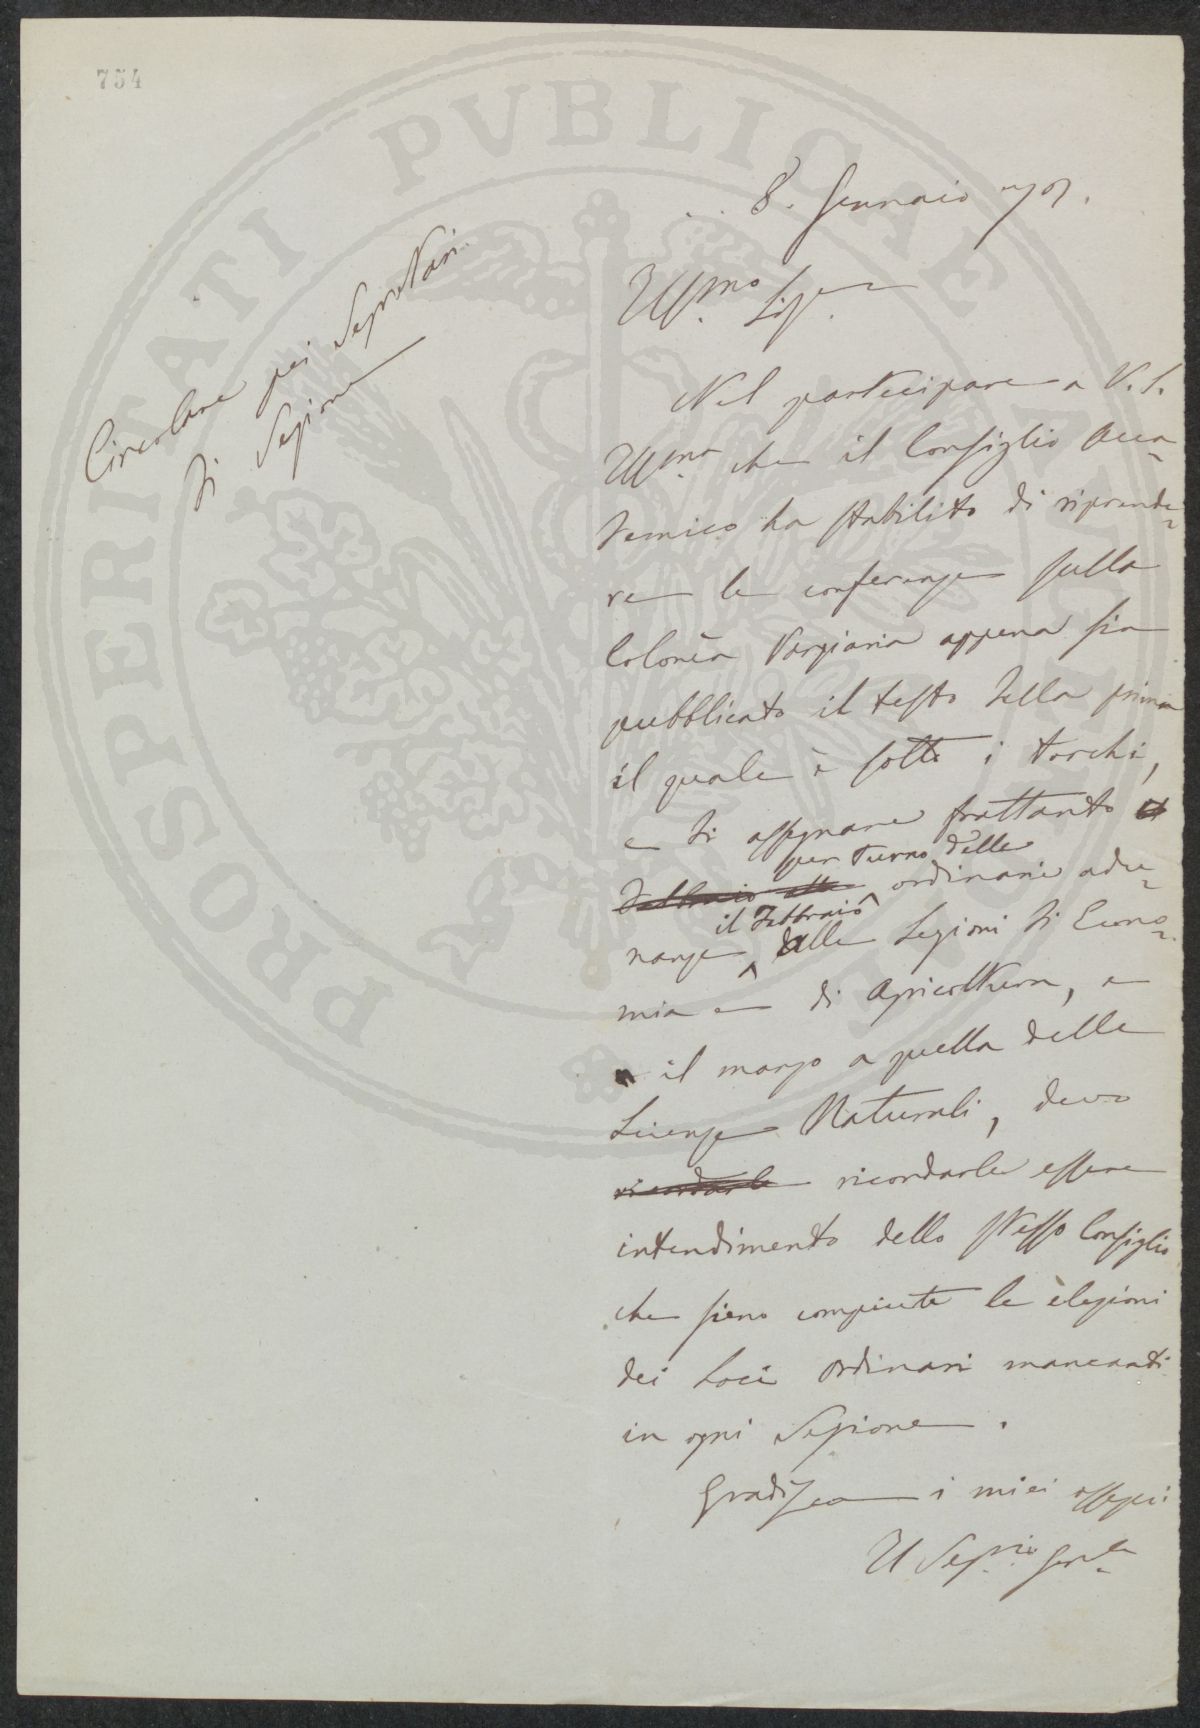 754
8. Gennaio
Circolare pei Segretari
di Sezione
Ill.mo Sig.
Nel partecipare a V. S.
Ill.ma che il Consiglio Acca-
demico ha stabilito di riprende-
re le conferenze sulla
Colonìa Parziaria appena sia
pubblicato il testo della prima
il quale è sotto i torchi,
e di assegnare frattanto il
per turno delle
Febbraio alle ordinarie adu-
il Febbraio
nanze alle Sezioni di Econo-
mia e di Agricoltura, e
il marzo a quella delle
Scienze Naturali, devo
ricordarle ricordarle essere
intendimento dello stesso Consiglio
che sieno compiute le elezioni
dei Soci Ordinari mancanti
in ogni Sezione.
Gradisca i miei ossequi
Il Seg.rio Gen.le
PROSPERITATI PVBLICAE